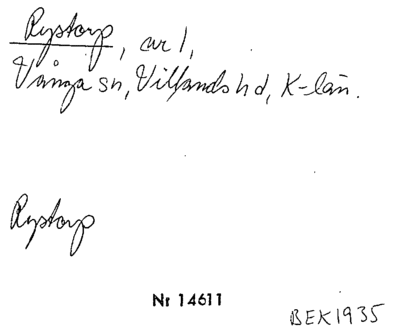 Rystorp, avs 1,
Vånga sn, Villands hd, K-län.
Rystorp
Nr 14611
BEK1935